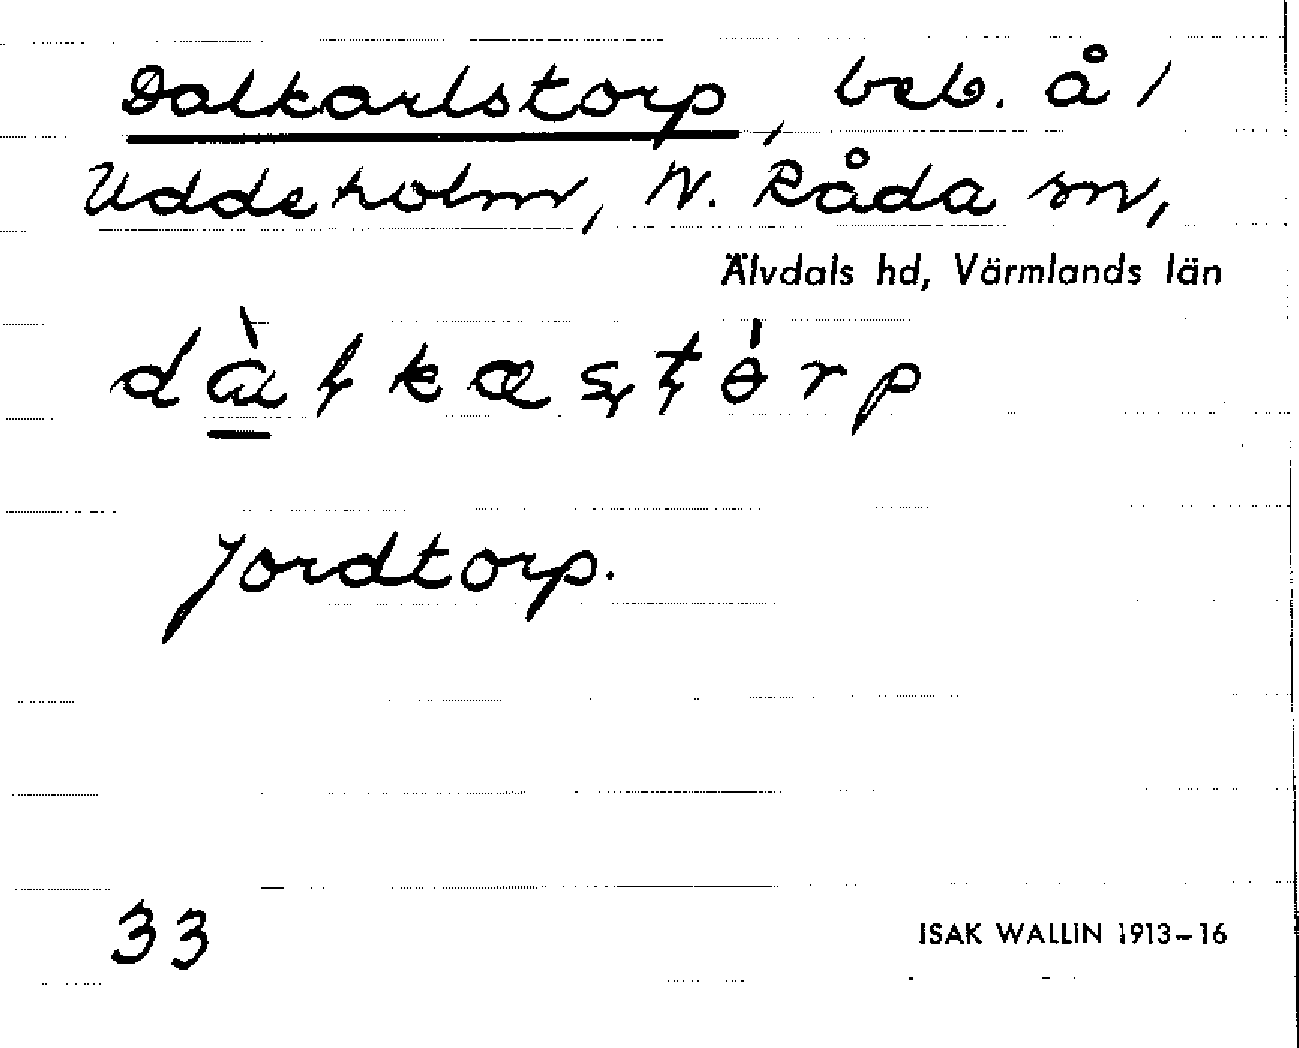 Dalkarlstorp, beb. å /
Uddeholm, N. Råda sn,
Älvdals hd, Värmlands län
Jordtorp.
33
ISAK WALLIN 1913–16